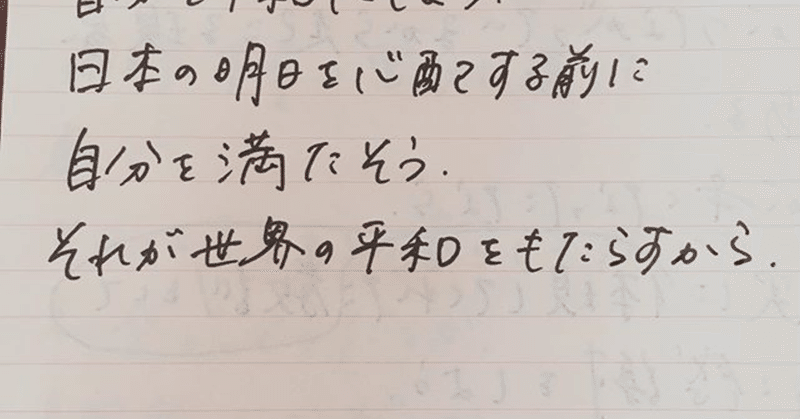 日本の明日を心配する前に
自分を満たそう.
それが世界の平和をもたらすから.